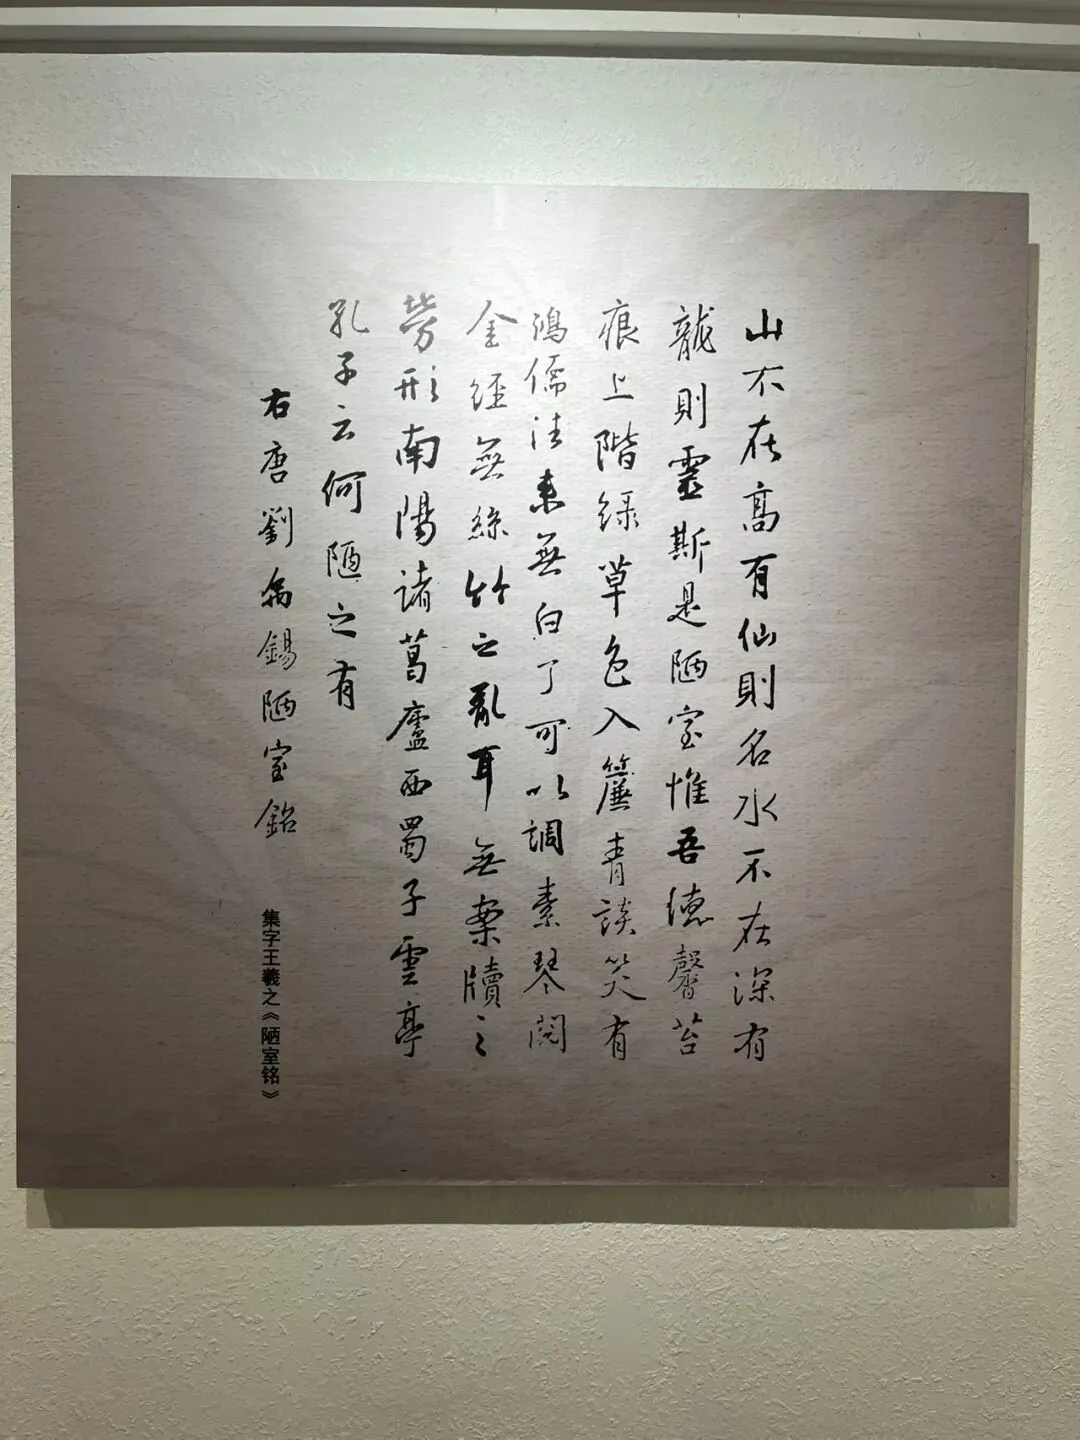 山不在高有仙則名水不在深有
龍則靈斯是陋室惟吾德馨苔
痕上階緑草色入簾青談笑有
鴻儒往来無白丁可以調素琴閱
金經無絲竹之亂耳無案牘之
勞形南陽諸葛廬西蜀子雲亭
孔子云何陋之有
右唐劉禹錫陋室銘
集字王羲之《陋室铭》